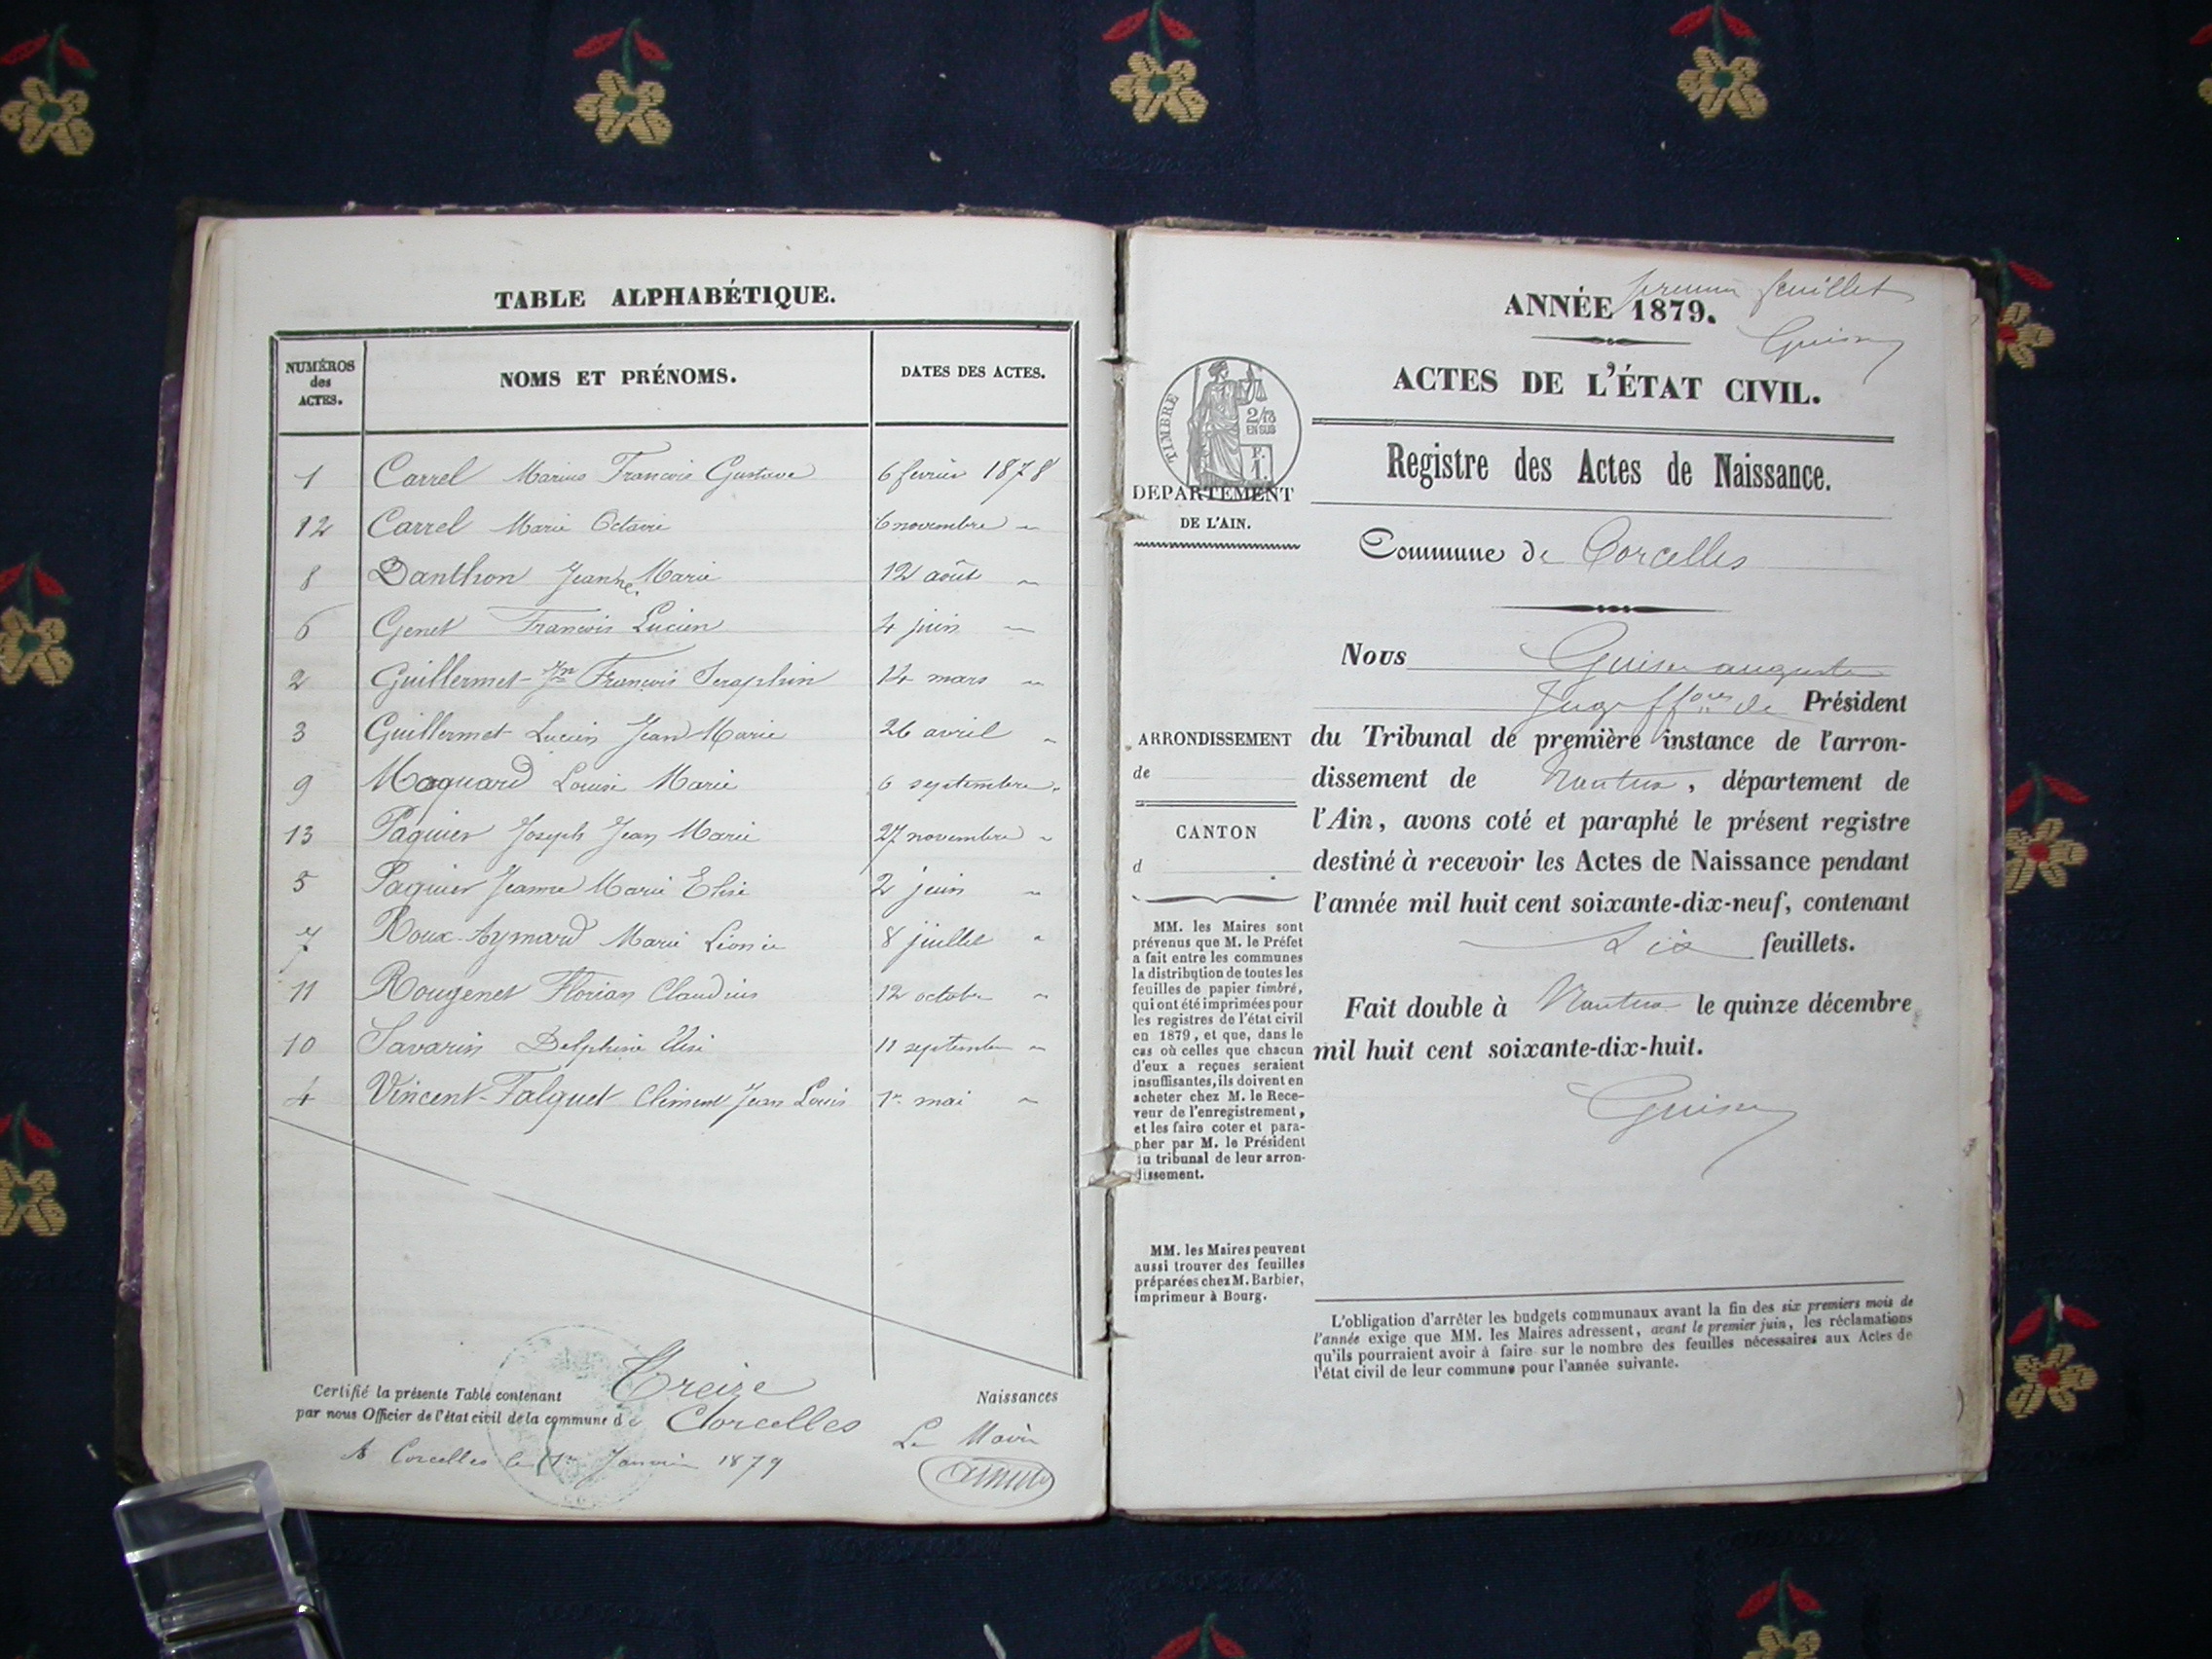 TABLE ALPHABÉTIQUE.
NUMÉROS des ACTES.
NOMS ET PRÉNOMS.
DATES DES ACTES.
1 Carrel Marius François Gustave 6 fevrier 1878
12 Carrel Marie Octavie 6 novembre "
8 Danthon Jeanne Marie 12 août "
6 Genet François Lucien 4 juin "
2 Guillermet Jn François Seraphin 14 mars "
3 Guillermet Lucien Jean Marie 26 avril "
9 Moquard Louise Marie 6 septembre "
13 Paquier Joseph Jean Marie 27 novembre "
5 Paquier Jeanne Marie Elise 2 juin "
7 Roux-Aymard Marie Léonie 8 juillet "
11 Rougenet Florian Claudius 12 octobre "
10 Savarin Delphine Elise 11 septembre "
4 Vincent-Falquet Climent Jean Louis 1er mai "
Certifié la présente Table contenant Treize Naissances
par nous Officier de l'état civil de la commune de Corcelles
Le Maire
A Corcelles le 1er Janvier 1879
premier feuillet
ANNÉE 1879.
ACTES DE L'ÉTAT CIVIL.
TIMBRE
2/10
EN SUS
F.
1.
Registre des Actes de Naissance.
DEPARTEMENT
DE L'AIN.
Commune de Corcelles
Nous
Juge ffons de Président
ARRONDISSEMENT
de
CANTON
d
du Tribunal de première instance de l'arron-
dissement de Nantua, département de
l'Ain, avons coté et paraphé le présent registre
destiné à recevoir les Actes de Naissance pendant
l'année mil huit cent soixante-dix-neuf, contenant
six feuillets.
Fait double à Nantua le quinze décembre
mil huit cent soixante-dix-huit.
MM. les Maires sont
prévenus que M. le Préfet
a fait entre les communes
la distribution de toutes les
feuilles de papier timbré,
qui ont été imprimées pour
les registres de l'état civil
en 1879, et que, dans le
cas où celles que chacun
d'eux a reçues seraient
insuffisantes, ils doivent en
acheter chez M. le Rece-
veur de l'enregistrement,
et les faire coter et para-
pher par M. le Président
du tribunal de leur arron-
dissement.
MM. les Maires peuvent
aussi trouver des feuilles
préparées chez M. Barbier,
imprimeur à Bourg.
L'obligation d'arrêter les budgets communaux avant la fin des six premiers mois de
l'année exige que MM. les Maires adressent, avant le premier juin, les réclamations
qu'ils pourraient avoir à faire sur le nombre des feuilles nécessaires aux Actes de
l'état civil de leur commune pour l'année suivante.